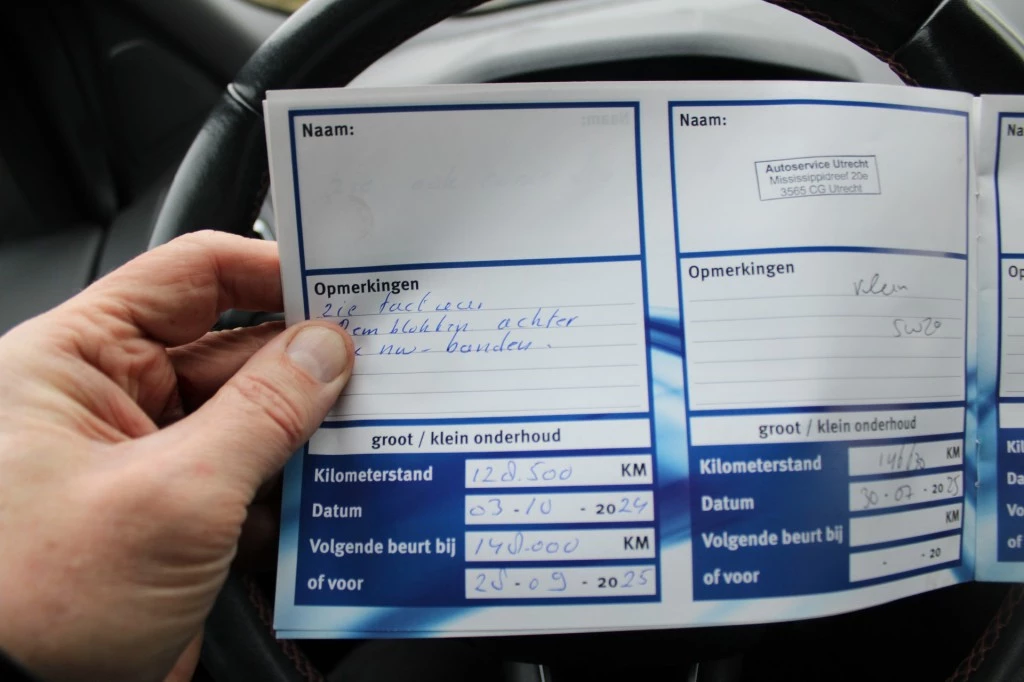 Naam:
Opmerkingen
zie factuur
Remblokken achter
nw- banden.
groot / klein onderhoud
Kilometerstand 128.500 KM
Datum 03-10 - 2024
Volgende beurt bij 148.000 KM
of voor 28-09 - 2025
Naam:
Autoservice Utrecht
Mississippidreef 20e
3565 CG Utrecht
Opmerkingen
Klein
5W20
groot / klein onderhoud
Kilometerstand KM
Datum 30-07-2025
Volgende beurt bij KM
of voor - - 20
Na
Op
Ki
Da
Vo
of